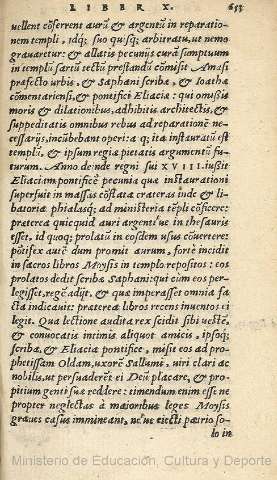 LIBER X. 653
vellent cōferrent aurū & argentū in reparatio-
nem templi, idq; suo quisq; arbitratu, ut nemo
grauaretur: & allatis pecunijs curā sumptuum
in templū sartū tectū præstandū cōmisit Amasi
præfecto urbis, & Saphani scribæ, & Ioathæ
cōmentariensi, & pontifici Eliaciæ: qui omissis
moris & dilationibus, adhibitis architectis, &
suppeditatis omnibus rebus ad reparationē ne-
cessarijs, incūbebant operi: a q; ita instauratū est
templū, & ipsum regiæ pietatis argumentū fu-
turum. Anno deinde regni sui XVIII. iußit
Eliaciam pontificē pecunia quæ instaurationi
superfuit in massas cōflata crateras inde & li-
batoria phialasq; ad ministeria tēpli cōficere:
præterea quicquid auri argentiue in thesauris
esset, id quoq; prolatū in eosdem usus cōuertere:
pōtifex autē dum promit aurum, forte incidit
in sacros libros Moysis in templo repositos: eos
prolatos dedit scribæ Saphani: qui cùm eos per-
legisset, regē adijt, & quæ imperasset omnia fa
cta indicauit: præterea libros recens inuentos ei
legit. Qua lectione audita rex scidit sibi uestē,
& conuocatis intimis aliquot amicis, ipsoq;
scriba, & Eliacia pontifice, misit eos ad pro-
phetissam Oldam, uxorē Sallumi, uiri clari ac
nobilis, ut persuaderēt ei Deū placare, & pro-
pitium genti suæ reddere: timendum enim esse ne
propter neglectas à maioribus leges Moysis
graues casus immineant, néue eiecti patrio so-
lo in
Ministerio de Educación, Cultura y Deporte